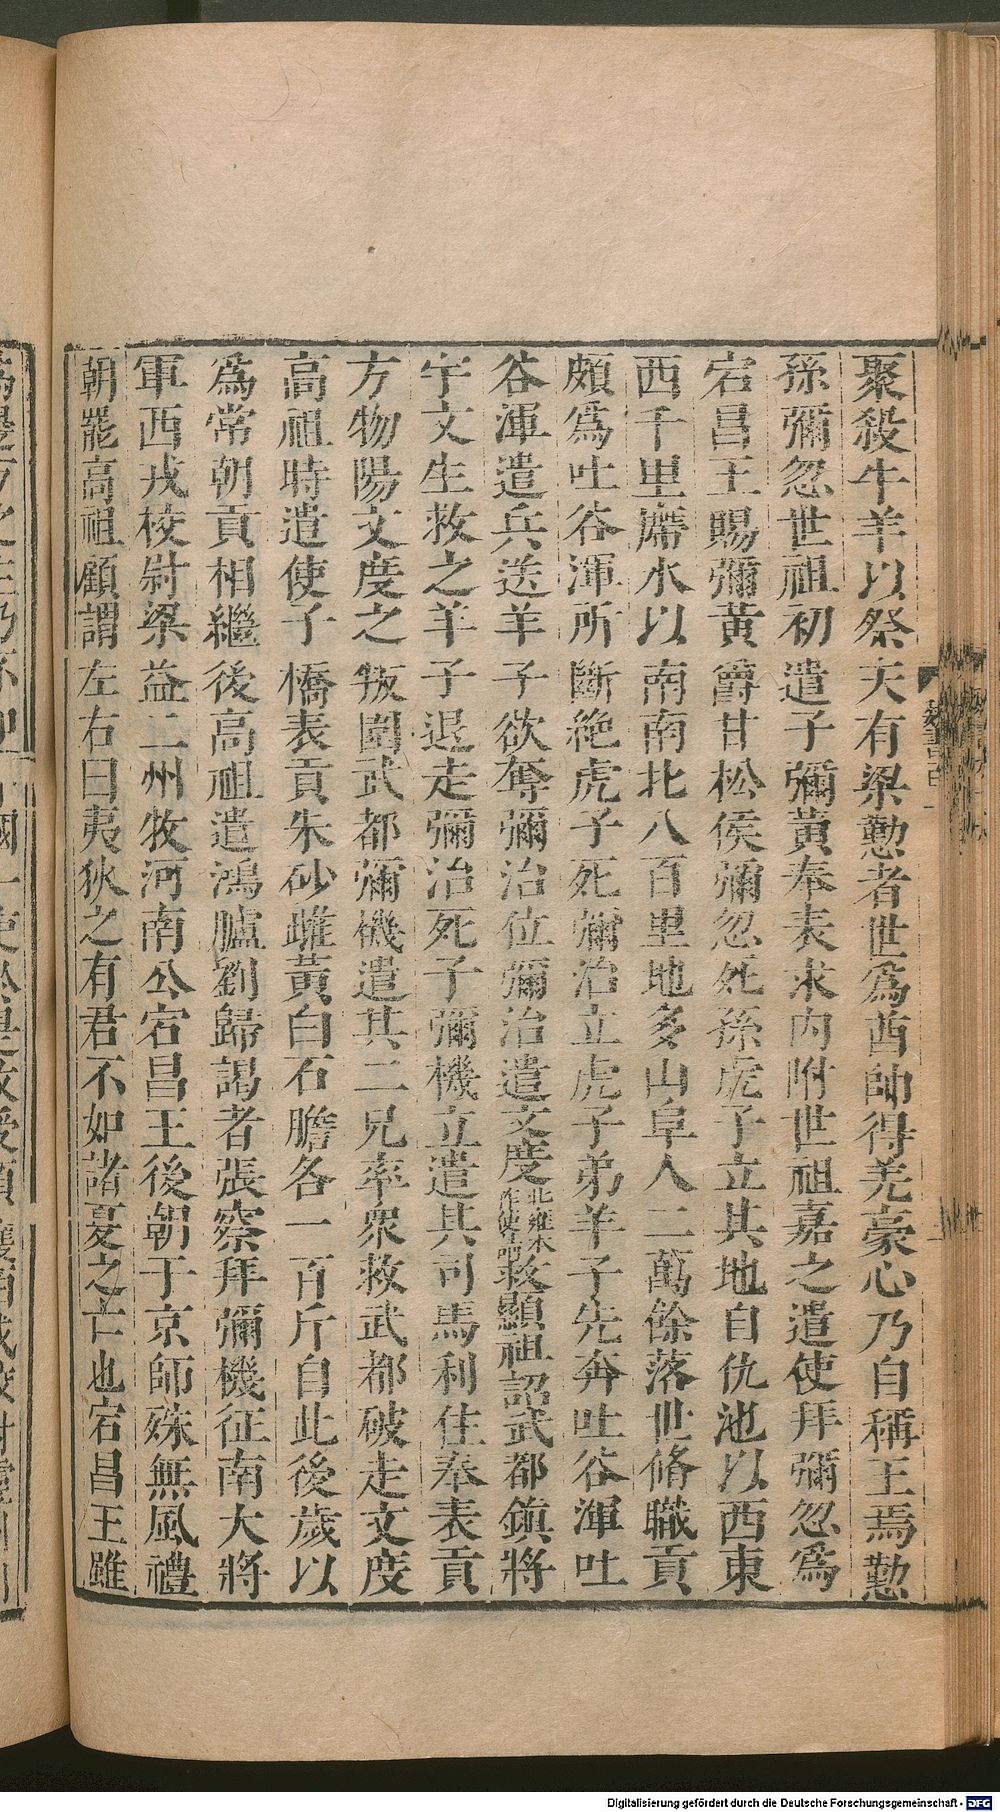 聚殺牛羊以祭天有梁懃者世爲酋帥得羌豪心乃自稱王焉懃
孫彌忽世祖初遣子彌黃奉表求內附世祖嘉之遣使拜彌忽爲
宕昌王賜彌黃爵甘松侯彌忽死孫虎子立其地自仇池以西東
西千里廗水以南南北八百里地多山阜人二萬餘落世脩職貢
頗爲吐谷渾所斷絶虎子死彌治立虎子弟羊子先奔吐谷渾吐
谷渾遣兵送羊子欲奪彌治位彌治遣文度北雍本作使本鄙救顯祖詔武都鎮將
宇文生救之羊子退走彌治死子彌機立遣其司馬利住奉表貢
方物陽文度之叛圍武都彌磯遣其二兄率衆救武都破走文度
高祖時遣使子橋表貢朱砂雌黃白石膽各一百斤自此後歲以
爲常朝貢相繼後高祖遣鴻臚劉歸謁者張察拜彌機征南大將
軍西戎校尉梁益二州牧河南公宕昌王後朝于京師殊無風禮
朝罷高祖顧謂左右曰夷狄之有君不如諸夏之亡也宕昌王雖
魏書一百一
Digitalisierung gefördert durch die Deutsche Forschungsgemeinschaft - DFG